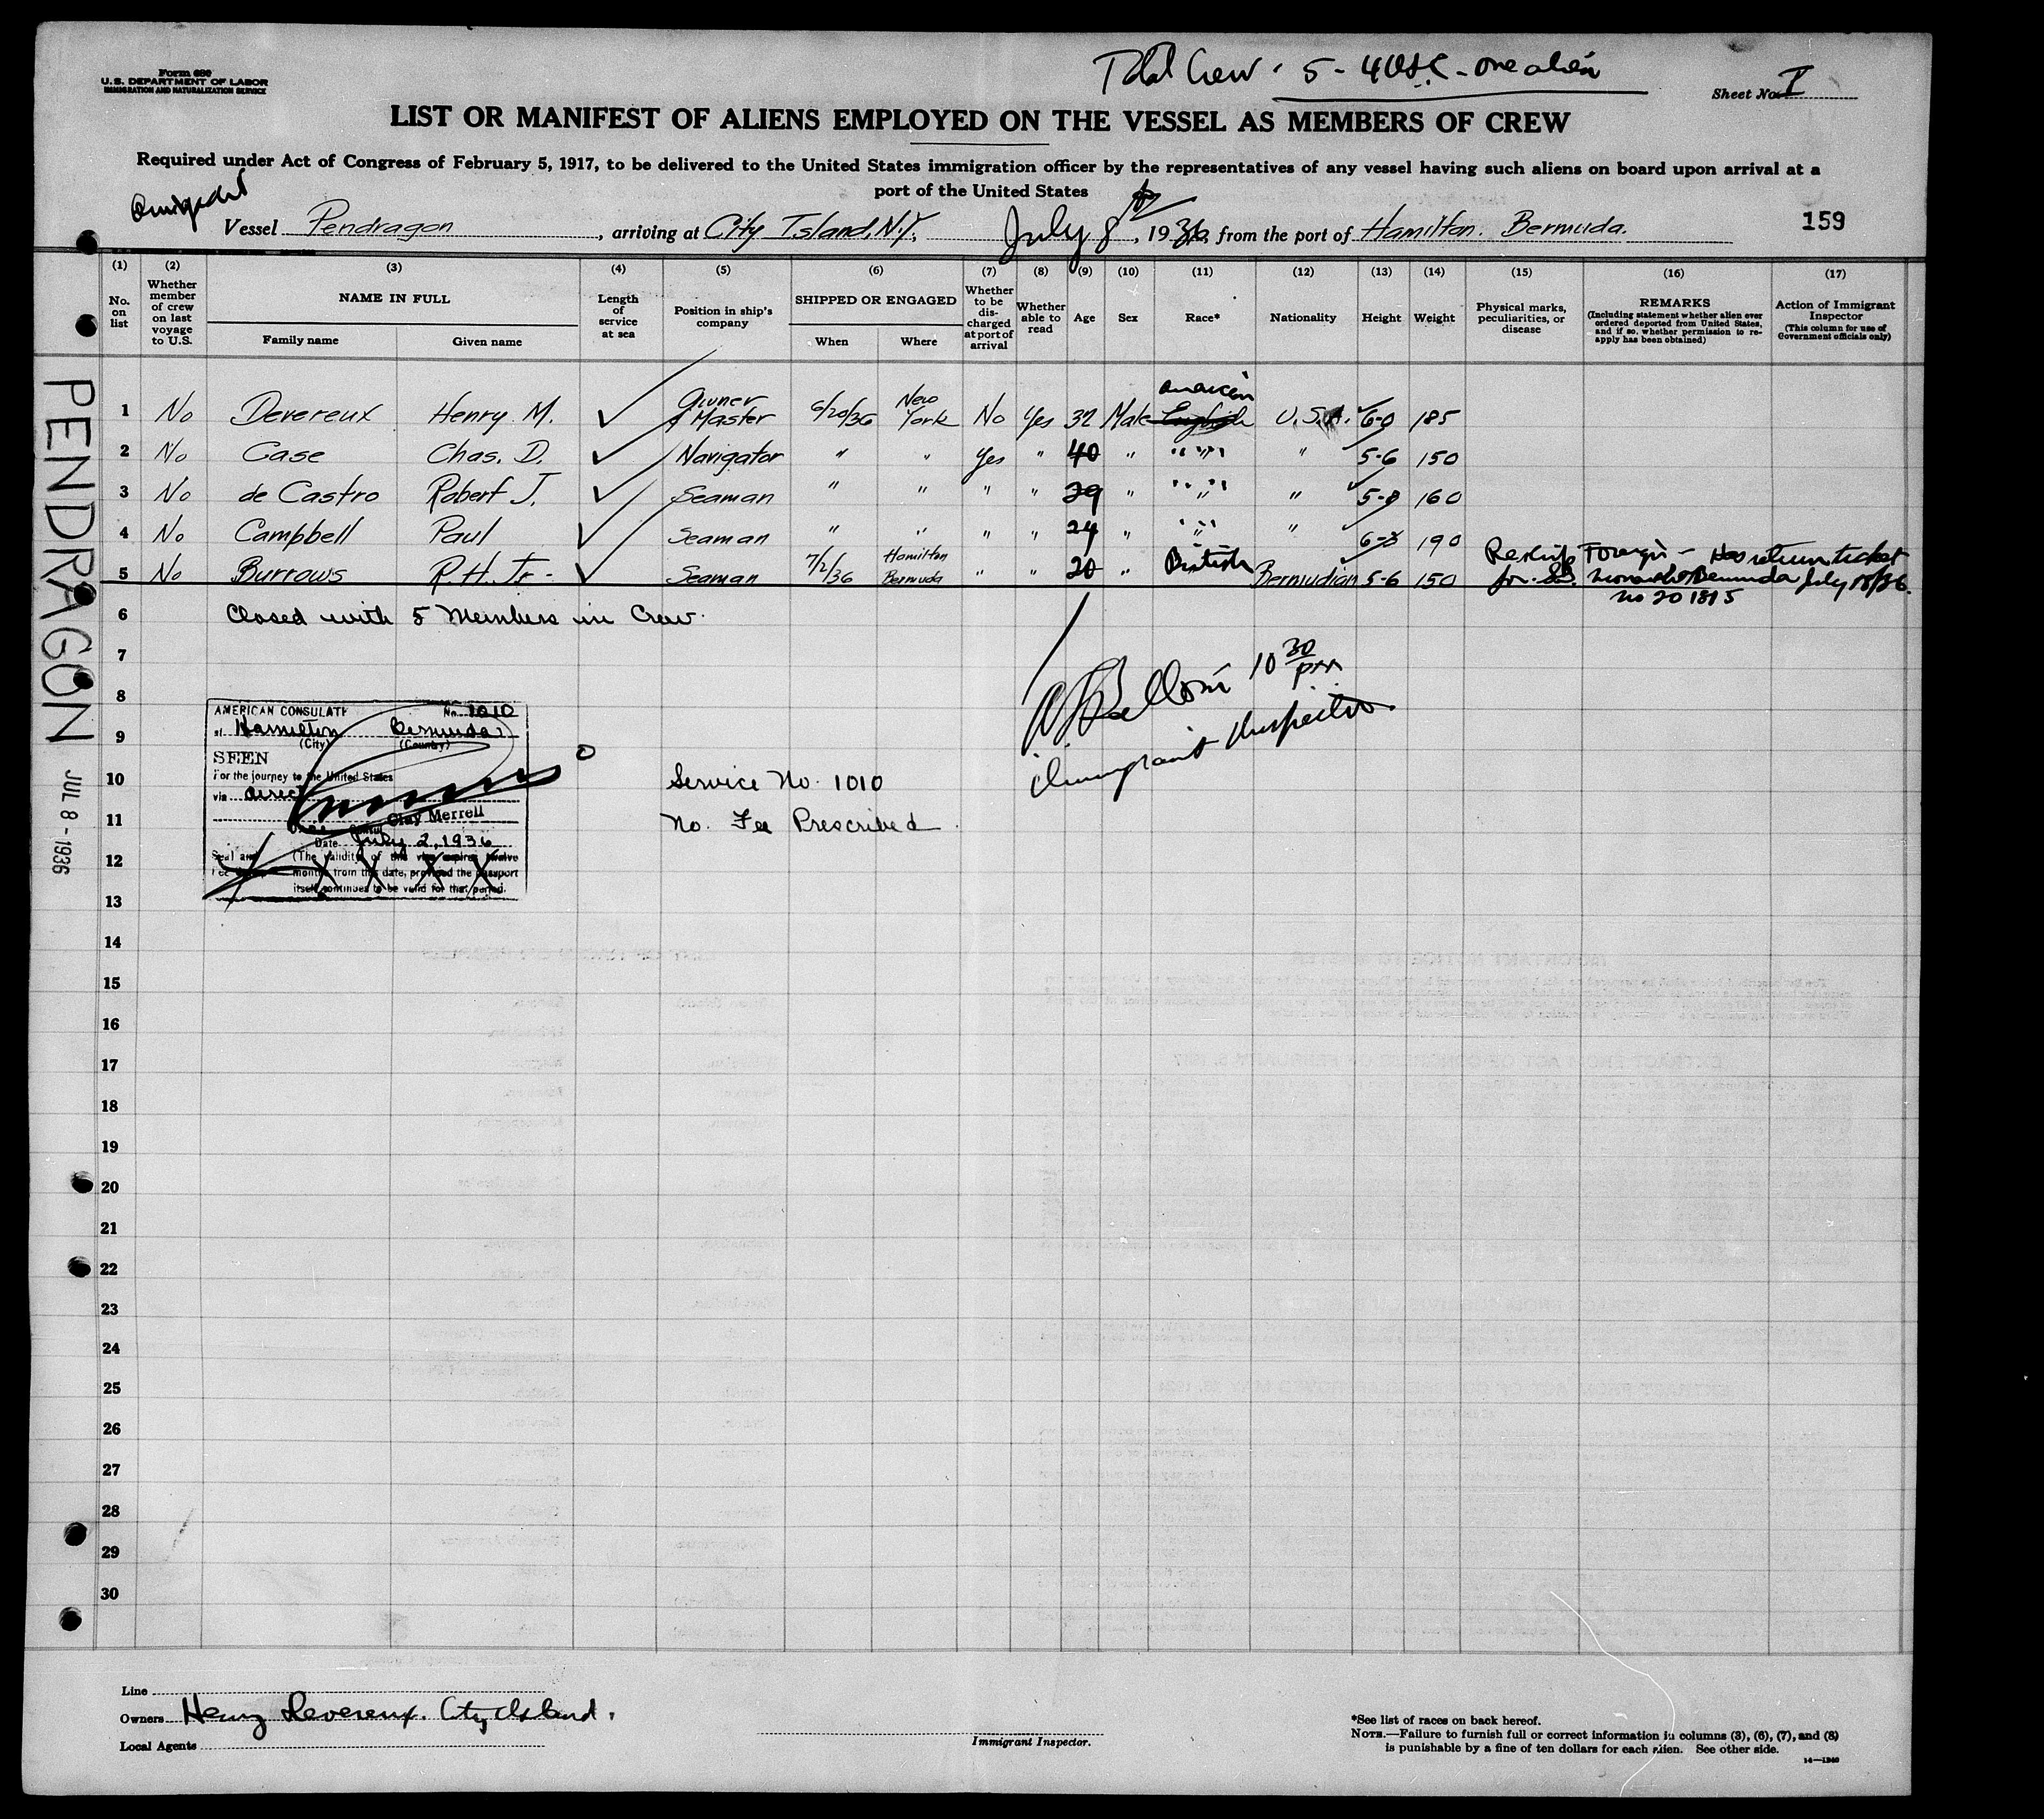 Form 680
U.S. DEPARTMENT OF LABOR
IMMIGRATION AND NATURALIZATION SERVICE
Total Crew . 5 - 4 USC - one alien
Sheet No. I
LIST OR MANIFEST OF ALIENS EMPLOYED ON THE VESSEL AS MEMBERS OF CREW
Required under Act of Congress of February 5, 1917, to be delivered to the United States immigration officer by the representatives of any vessel having such aliens on board upon arrival at a
port of the United States
Vessel Pendragon, arriving at City Island, N.Y., July 8th, 1936, from the port of Hamilton. Bermuda.
159
(1) (2) (3) (4) (5) (6) (7) (8) (9) (10) (11) (12) (13) (14) (15) (16) (17)
No. on list
Whether member of crew on last voyage to U.S.
NAME IN FULL
Family name
Given name
Length of service at sea
Position in ship's company
SHIPPED OR ENGAGED
When
Where
Whether to be discharged at port of arrival
Whether able to read
Age
Sex
Race*
Nationality
Height
Weight
Physical marks, peculiarities, or disease
REMARKS
(Including statement whether alien ever ordered deported from United States, and if so, whether permission to re-apply has been obtained)
Action of Immigrant Inspector
(This column for use of Government officials only)
American
1 No Devereux Henry M. ✓ Owner & Master 6/20/36 New York No Yes 32 Male English U.S.A. 6-0 185
2 No Case Chas. D. ✓ Navigator " " Yes " 40 " " " 5-6 150
3 No de Castro Robert J. ✓ Seaman " " " " 29 " " " 5-8 160
4 No Campbell Paul ✓ Seaman " " " " 24 " " " 6-3 190
5 No Burrows R.H. Jr - ✓ Seaman 7/2/36 Hamilton Bermuda " " 20 " British Bermudian 5-6 150 Reship Foreign - Has return ticket
for SS. Monarch of Bermuda July 18/36.
No 201815
6 Closed with 5 Members in Crew.
7
8
9
10
11
12
13
14
15
16
17
18
19
20
21
22
23
24
25
26
27
28
29
30
PENDRAGON
JUL 8 - 1936
AMERICAN CONSULATE No. 1010
at Hamilton Bermuda
(City) (Country)
SEEN
For the journey to the United States
via direct
Clay Merrell
Consul
Date July 2, 1936
Seal and
Fee
(The validity of this visa expires twelve
months from this date, provided the passport
itself continues to be valid for that period.
Service No. 1010
No. Fee Prescribed
10 30 pm
Immigrant Inspector
Line
Owners Henry Devereux. City Island.
Local Agents
Immigrant Inspector.
*See list of races on back hereof.
NOTE.—Failure to furnish full or correct information in columns (3), (6), (7), and (8)
is punishable by a fine of ten dollars for each alien. See other side.
14—1240